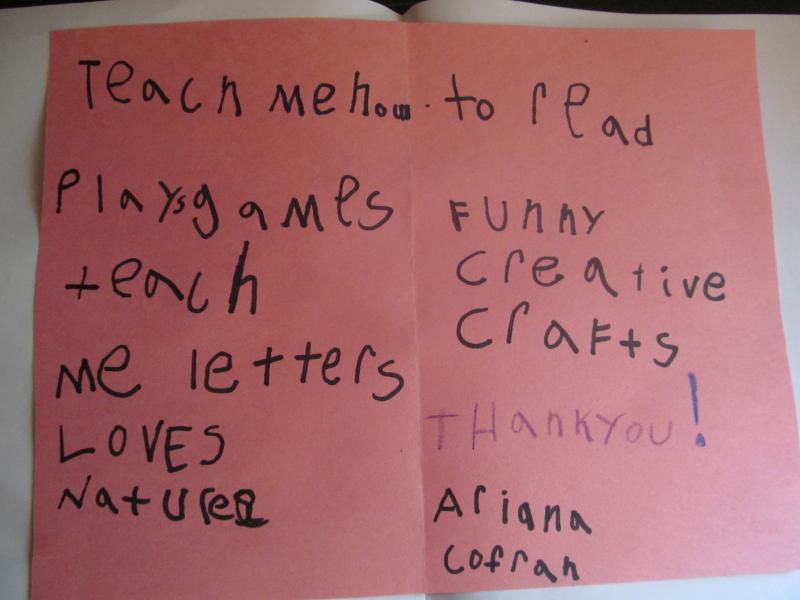 Teach me how to read
Playsgames
teach
me letters
LOVES
Nature
FUNNY
Creative
Crafts
THankyou!
Ariana
Cofran